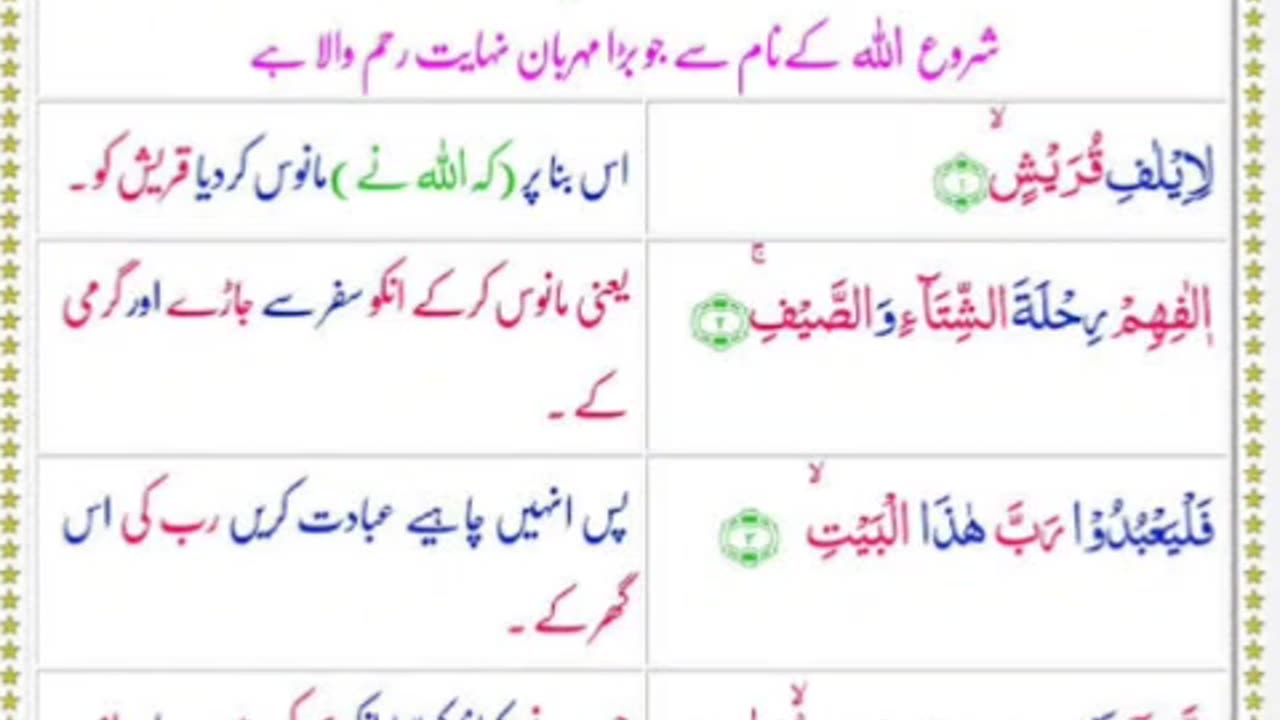 شروع اللہ کے نام سے جو بڑا مہربان نہایت رحم والا ہے
لِاِیْلٰفِ قُرَیْشٍۙ ۱
اس بنا پر (کہ اللہ نے) مانوس کر دیا قریش کو۔
اٖلٰفِهِمْ رِحْلَةَ الشِّتَآءِ وَ الصَّیْفِۚ ۲
یعنی مانوس کرکے انکو سفر سے جاڑے اور گرمی
کے ۔
فَلْیَعْبُدُوْا رَبَّ هٰذَا الْبَیْتِۙ ۳
پس انہیں چاہیے عبادت کریں رب کی اس
گھر کے ۔